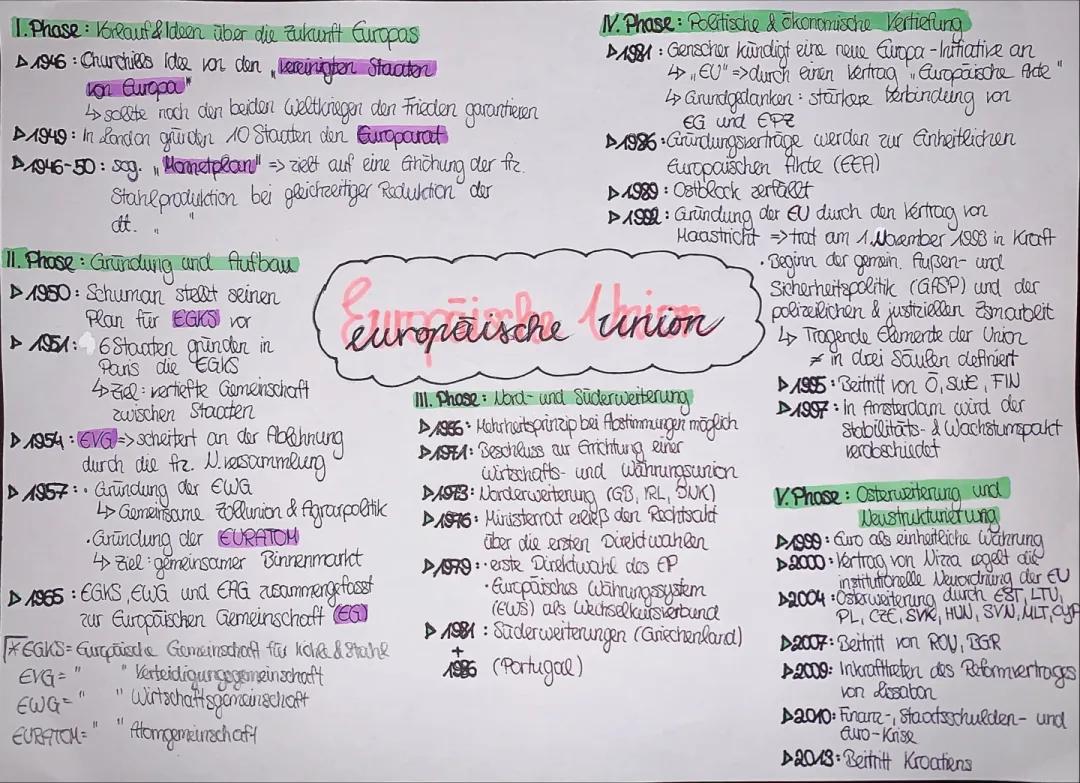 I. Phase: Vorlauf & Ideen über die Zukunft Europas
▷ 1946: Churchills Idee von den "vereinigten Staaten
von Europa"
↳ sollte nach den beiden Weltkriegen den Frieden garantieren
▷ 1949: In London gründen 10 Staaten den Europarat
▷ 1946-50: sog. "Monnetplan" => zielt auf eine Erhöhung der frz.
Stahlproduktion bei gleichzeitiger Reduktion der
dt. "
II. Phase: Gründung und Aufbau
▷ 1950: Schuman stellt seinen
Plan für EGKS vor
▷ 1951: 6 Staaten gründen in
Paris die EGKS
↳ Ziel: vertiefte Gemeinschaft
zwischen Staaten
▷ 1954: EVG => scheitert an der Ablehnung
durch die frz. N.versammlung
▷ 1957: · Gründung der EWG
↳ Gemeinsame Zollunion & Agrarpolitik
· Gründung der EURATOM
↳ Ziel: gemeinsamer Binnenmarkt
▷ 1965: EGKS, EWG und EAG zusammengefasst
zur Europäischen Gemeinschaft (EG)
*EGKS = Europäische Gemeinschaft für Kohle & Stahl
EVG = " " Verteidigungsgemeinschaft
EWG = " " Wirtschaftsgemeinschaft
EURATOM = " " Atomgemeinschaft
Europäische Union
europäische Union
III. Phase: Nord- und Süderweiterung
▷ 1966: Mehrheitsprinzip bei Abstimmungen möglich
▷ 1971: Beschluss zur Errichtung einer
Wirtschafts- und Währungsunion
▷ 1973: Norderweiterung (GB, IRL, DNK)
▷ 1976: Ministerrat erließ den Rechtsakt
über die ersten Direktwahlen
▷ 1979: · erste Direktwahl des EP
· Europäisches Währungssystem
(EWS) als Wechselkursverbund
▷ 1981: Süderweiterungen (Griechenland)
+
1986 (Portugal)
IV. Phase: Politische & ökonomische Vertiefung
▷ 1981: Genscher kündigt eine neue Europa-Initiative an
↳ "EU" => durch einen Vertrag "Europäische Akte"
↳ Grundgedanken: stärkere Verbindung von
EG und EPZ
▷ 1986: Gründungsverträge werden zur Einheitlichen
Europäischen Akte (EEA)
▷ 1989: Ostblock zerfällt
▷ 1992: Gründung der EU durch den Vertrag von
Maastricht => trat am 1. November 1993 in Kraft
· Beginn der gemein. Außen- und
Sicherheitspolitik (GASP) und der
polizeilichen & justiziellen Zsmarbeit
↳ Tragende Elemente der Union
≠ in drei Säulen definiert
▷ 1995: Beitritt von Ö, SWE, FIN
▷ 1997: In Amsterdam wird der
Stabilitäts- & Wachstumspakt
verabschiedet
V. Phase: Osterweiterung und
Neustrukturierung
▷ 1999: Euro als einheitliche Währung
▷ 2000: Vertrag von Nizza regelt die
institutionelle Neuordnung der EU
▷ 2004: Osterweiterung durch EST, LTU,
PL, CZE, SVK, HUN, SVN, MLT, CYP
▷ 2007: Beitritt von ROU, BGR
▷ 2009: Inkrafttreten des Reformvertrages
von Lissabon
▷ 2010: Finanz-, Staatsschulden- und
Euro-Krise
▷ 2013: Beitritt Kroatiens